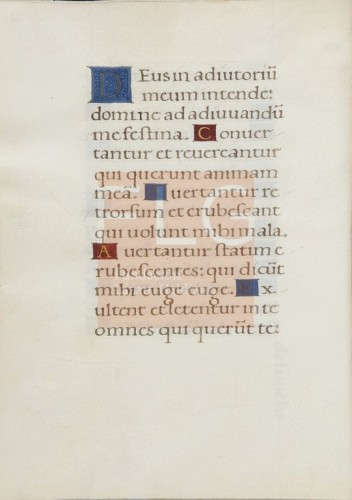 Deus in adiutoriū
meum intende:
domine ad adiuuandū
me festina. Conuer
tantur et reuereantur
qui querunt animam
meā. Auertantur re
trorsum et erubescant
qui uolunt mihi mala.
Auertantur statim e
rubescentes: qui dicūt
mihi euge euge. Ex
ultent et letentur in te
omnes qui querūt te:
FLG